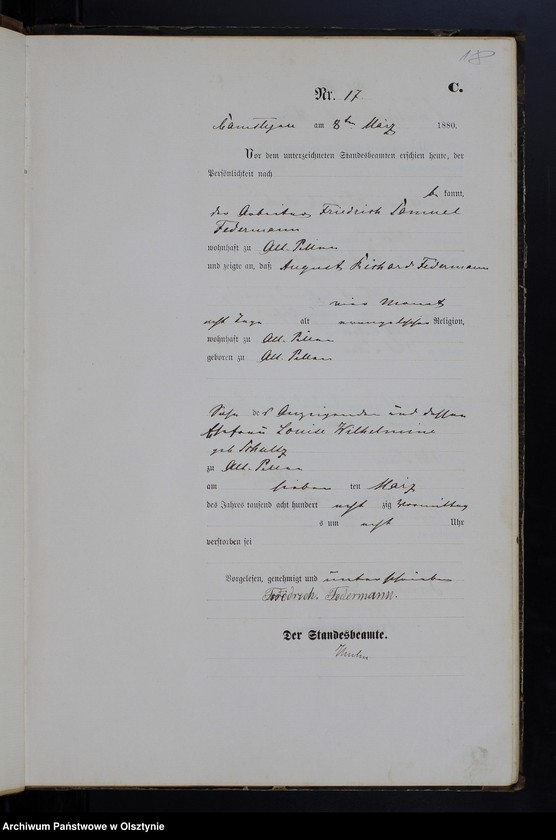 18
C.
Nr. 17
Camstigall am 8ten März 1880.
Vor dem unterzeichneten Standesbeamten erschien heute, der
Persönlichkeit nach
be kannt,
der Arbeiter Friedrich Samuel
Federmann
wohnhaft zu Alt-Pillau
und zeigte an, daß August Richard Federmann
vier Monat
acht Tage alt evangelischer Religion,
wohnhaft zu Alt-Pillau
geboren zu Alt-Pillau
Sohn des Anzeigenden und dessen
Ehefrau Louise Wilhelmine
geb Schultz
zu Alt-Pillau
am sieben ten März
des Jahres tausend acht hundert acht zig Vormittag
s um acht Uhr
verstorben sei
Vorgelesen, genehmigt und unterschrieben
Friedrich. Federmann.
Der Standesbeamte.
Archiwum Państwowe w Olsztynie